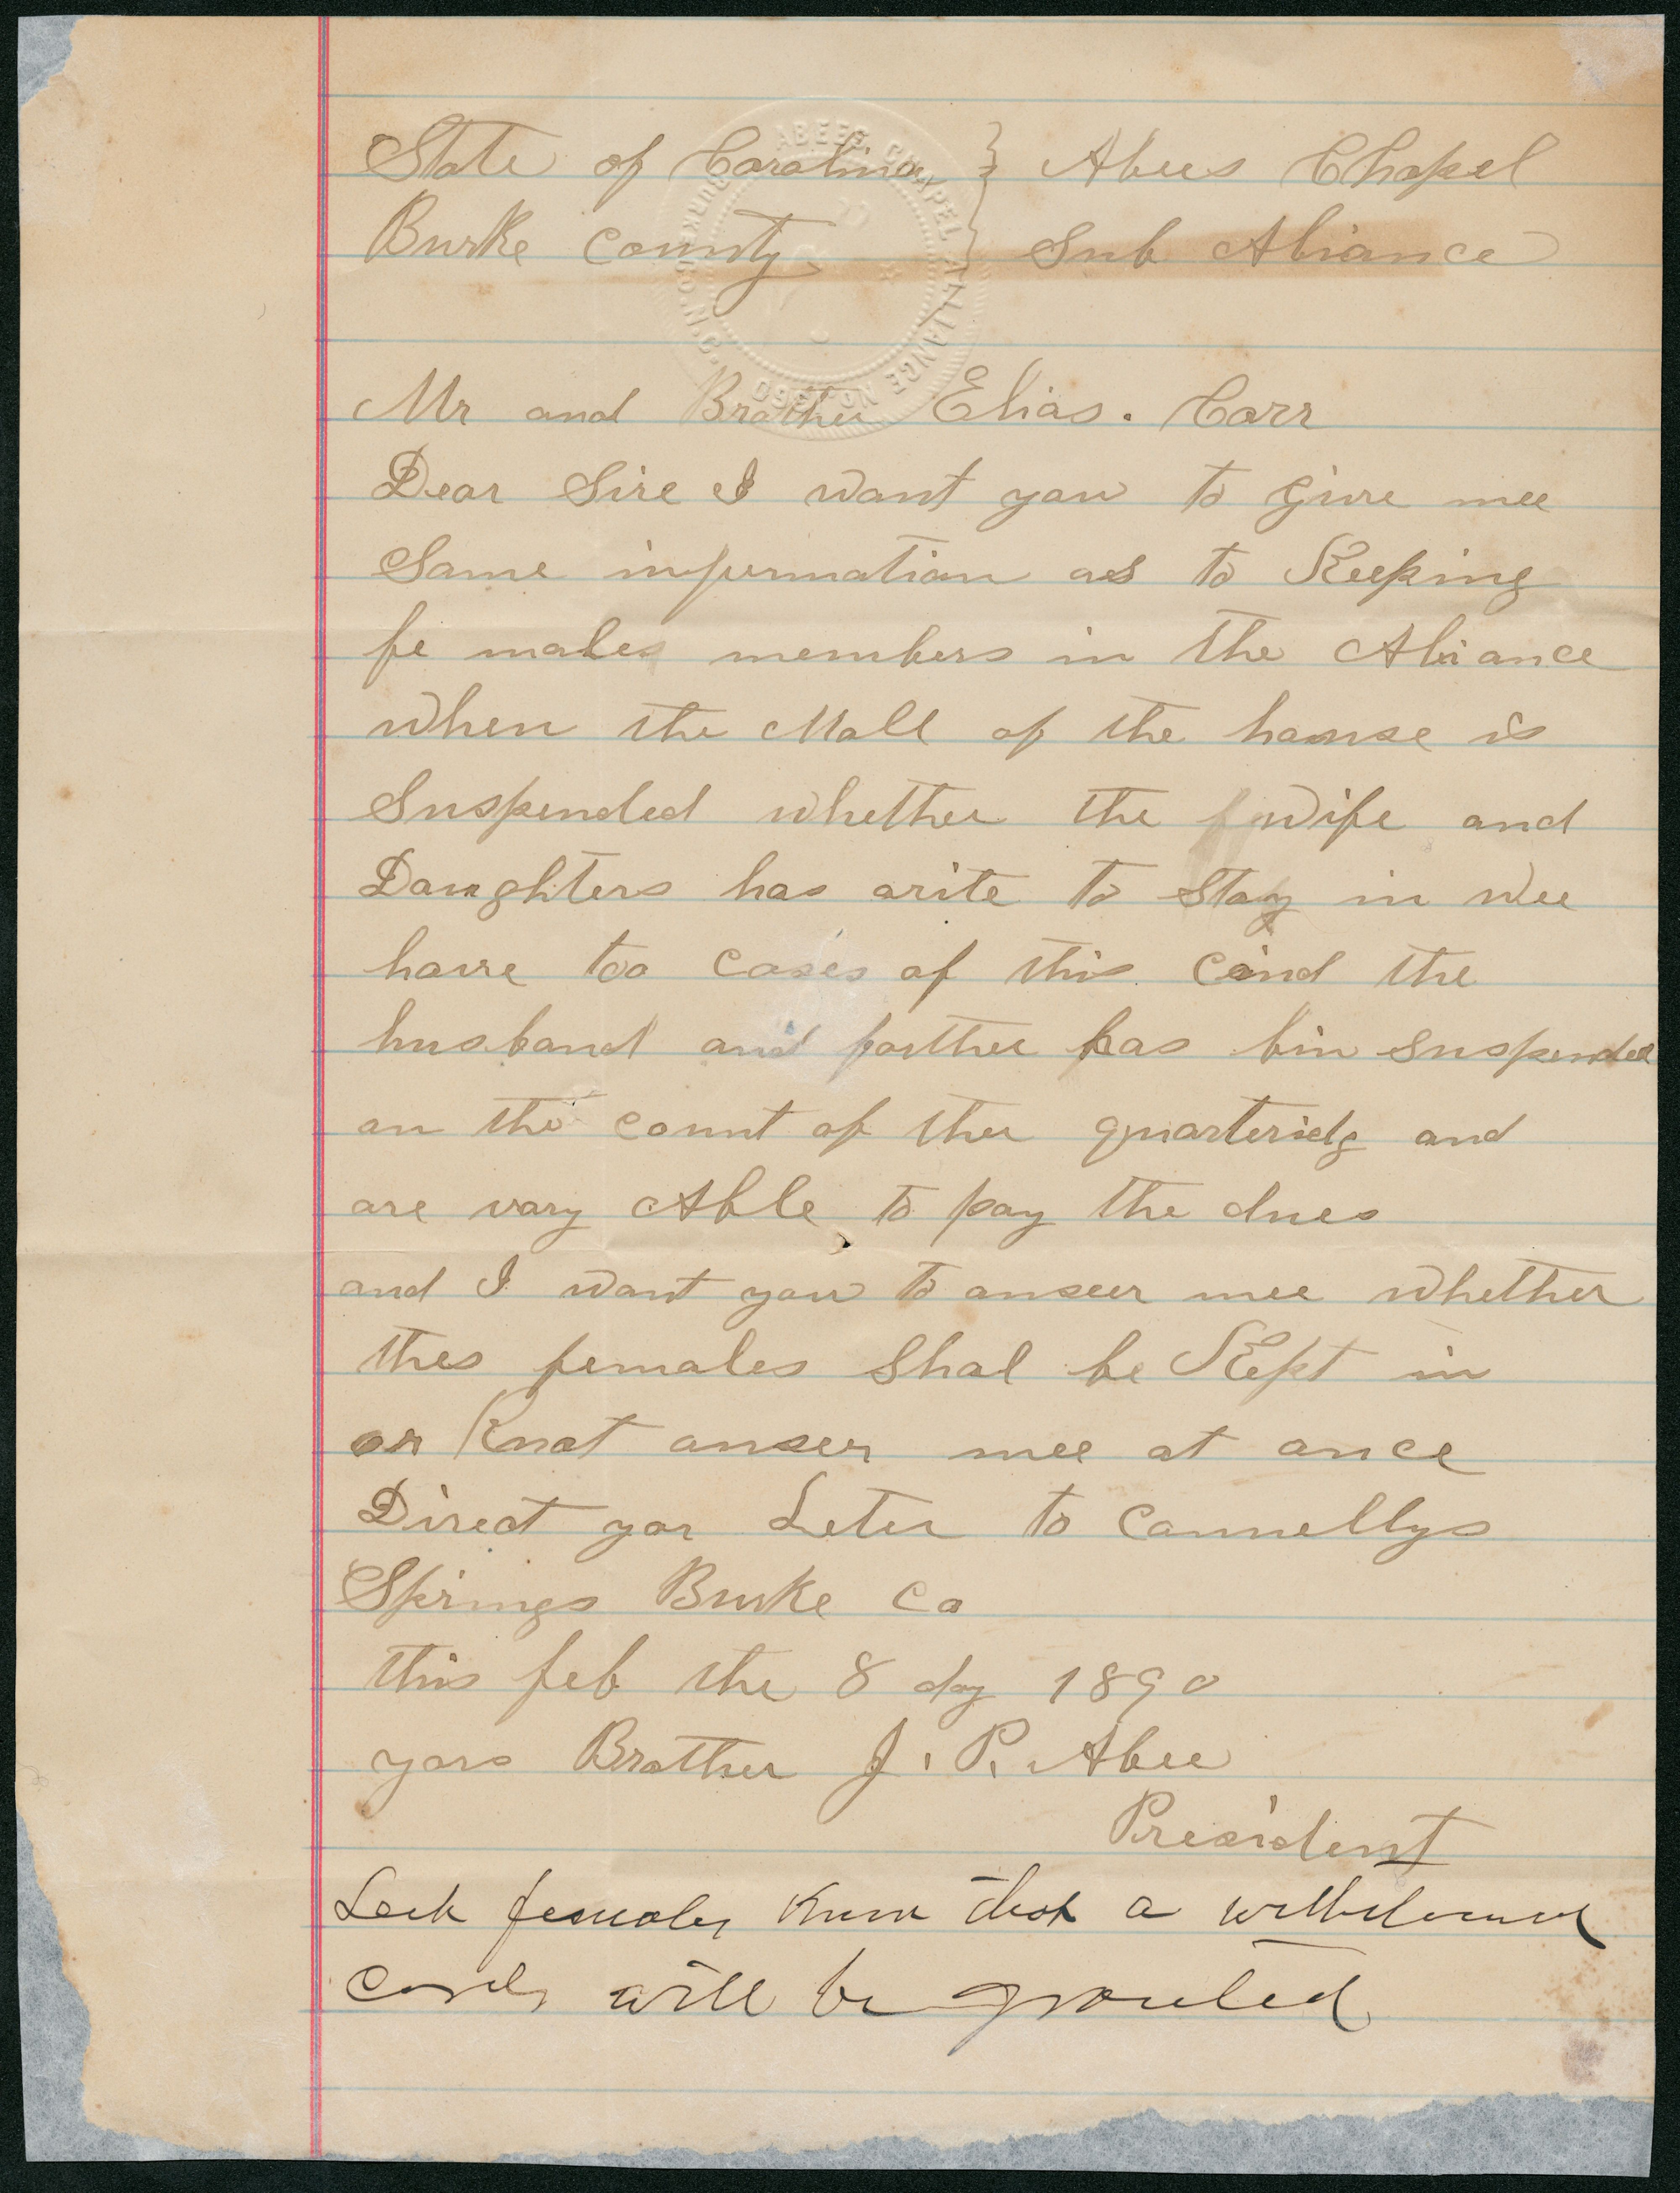 State of Carolina } Abees Chapel
Burke County } Sub Aliance
ABEES CHAPEL ALLIANCE NO.
BURKE CO. N.C.
Mr and Brother Elias. Carr
Dear Sire I want you to give mee
Some infurmation as to Keeping
fe males members in the Aliance
when the Mall of the house is
Suspended whether the wife and
Daughters has arite to Stay in wee
have too cases of this cind the
husband and farther has bin Suspended
on the count of ther quarteridg and
are vary Able to pay the dues
and I want you to anseer mee whether
thes females Shal be Kept in
or Knot anseer mee at once
Direct yor Leter to Connellys
Springs Burke Co
this feb the 8 day 1890
yors Brother J. P. Abee
President
females know that a
cards will be granted